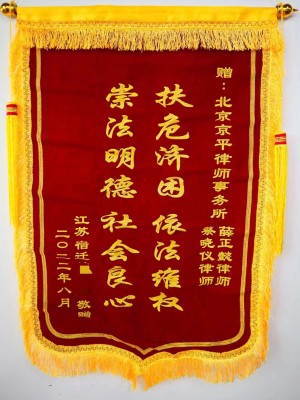 赠：北京京平律师事务所
薛正懿律师
景晓仪律师
扶危济困 依法维权
崇法明德 社会良心
江苏宿迁 敬赠
二〇二二年八月